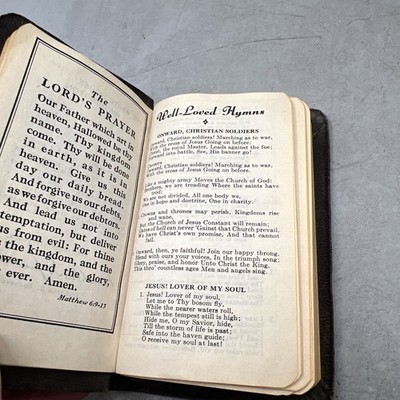 The
LORD'S PRAYER
Our Father which art in
heaven, Hallowed be thy
name. Thy kingdom
come. Thy will be done
in earth, as it is in
heaven. Give us this
day our daily bread.
And forgive us our debts,
as we forgive our debtors.
And lead us not into
temptation, but deliver
us from evil: For thine
is the kingdom, and the
power, and the glory,
ever. Amen.
Matthew 6:9-13
Well-Loved Hymns
ONWARD, CHRISTIAN SOLDIERS
Christian soldiers! Marching as to war,
With the cross of Jesus Going on before:
the royal Master, Leads against the foe;
into battle, See, His banner go!
Christian soldiers! Marching as to war,
With the cross of Jesus Going on before.
a mighty army Moves the Church of God:
we are treading Where the saints have
trod;
We are not divided, All one body we,
in hope and doctrine, One in charity.
Crowns and thrones may perish, Kingdoms rise
and wane,
But the Church of Jesus Constant will remain:
Gates of hell can never 'Gainst that Church prevail,
We have Christ's own promise, And that cannot
fail.
Onward, then, ye faithful! Join our happy throng,
Blend with ours your voices, In the triumph song:
Glory, praise, and honor Unto Christ the King,
This thro' countless ages Men and angels sing.
JESUS! LOVER OF MY SOUL
1. Jesus! Lover of my soul,
Let me to Thy bosom fly,
While the nearer waters roll,
While the tempest still is high;
Hide me, O my Savior, hide,
Till the storm of life is past;
Safe into the haven guide;
O receive my soul at last!